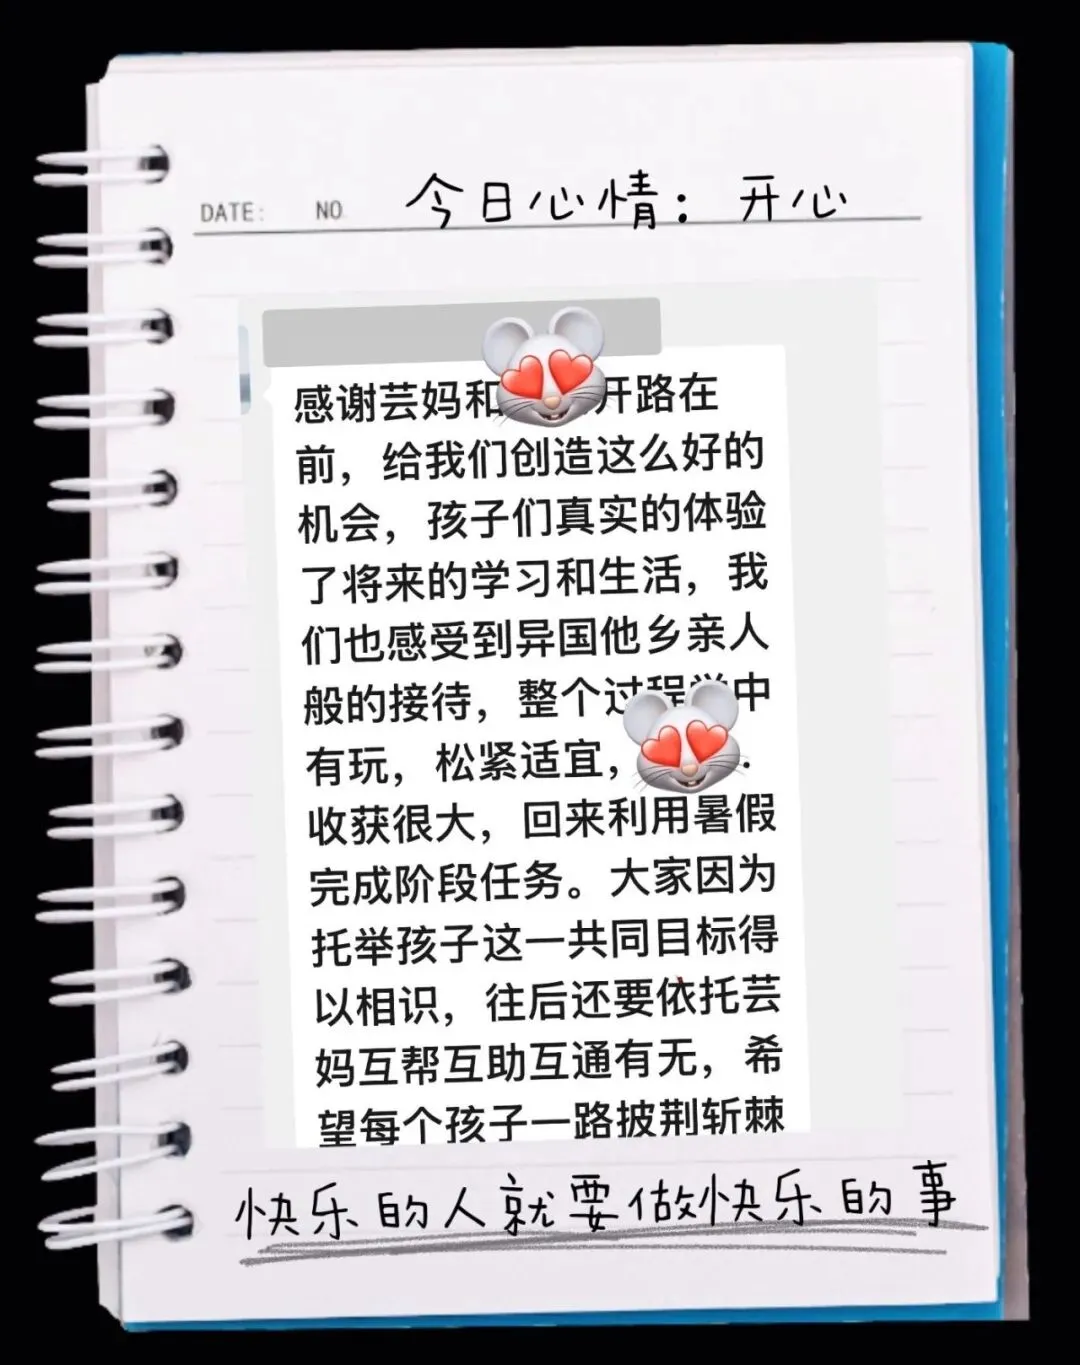 DATE: NO. 今日心情：开心
感谢芸妈和 开路在
前，给我们创造这么好的
机会，孩子们真实的体验
了将来的学习和生活，我
们也感受到异国他乡亲人
般的接待，整个过程学中
有玩，松紧适宜，
收获很大，回来利用暑假
完成阶段任务。大家因为
托举孩子这一共同目标得
以相识，往后还要依托芸
妈互帮互助互通有无，希
望每个孩子一路披荆斩棘
快乐的人就要做快乐的事